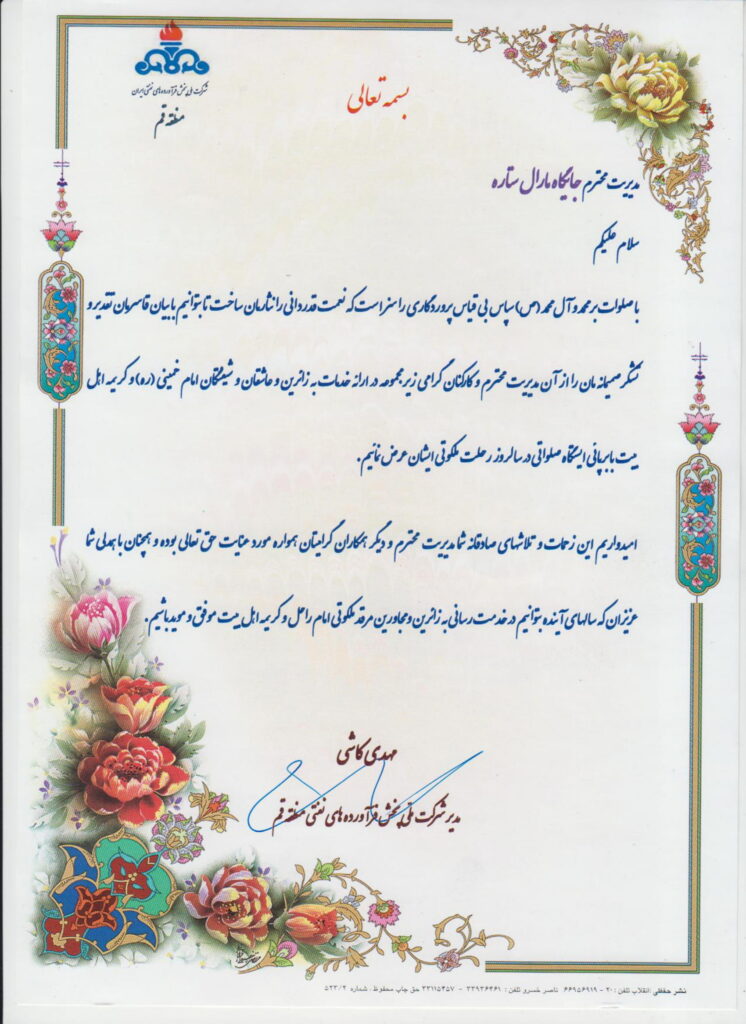 شرکت ملی پخش فرآورده‌های نفتی ایران
منطقه قم
بسمه تعالی
مدیریت محترم جایگاه مارال ستاره
سلام علیکم
با صلوات بر محمد و آل محمد (ص) سپاس بی قیاس پروردگاری را سزاست که نعمت قدردانی را نثارمان ساخت تا بتوانیم با بیان قاصرمان تقدیر و
تشکر صمیمانه مان را از آن مدیریت محترم و کارکنان گرامی زیر مجموعه در ارائه خدمات به زائرین و عاشقان و شیفتگان امام خمینی (ره) و کریمه اهل
بیت با برپائی ایستگاه صلواتی در سالروز رحلت ملکوتی ایشان عرض نمائیم.
امیدواریم این زحمات و تلاشهای صادقانه شما مدیریت محترم و دیگر همکاران گرامیتان همواره مورد عنایت حق تعالی بوده و همچنان با همدلی شما
عزیزان که سالهای آینده بتوانیم در خدمت رسانی به زائرین و مجاورین مرقد ملکوتی امام راحل و کریمه اهل بیت موفق و موید باشیم.
مهدی کاشی
مدیر شرکت ملی پخش فرآورده های نفتی منطقه قم
نشر حفظی: انقلاب تلفن: ۲۰ - ۶۶۹۵۶۹۱۹ ناصر خسرو تلفن: ۳۳۹۳۶۴۶۱ - ۳۳۱۱۵۴۵۷ حق چاپ محفوظ. شماره ۵۲۳/۲